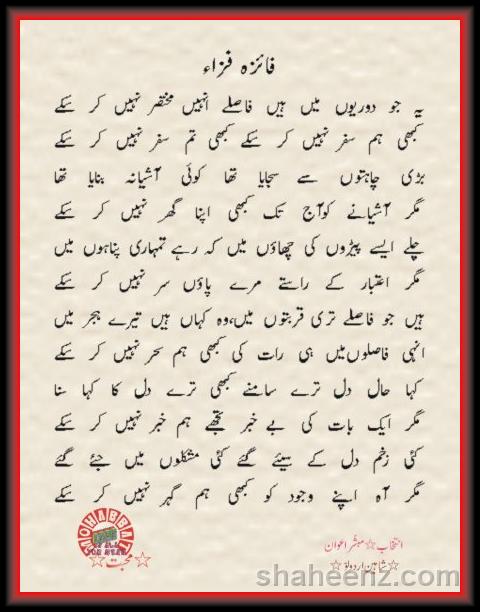 فائزہ فزاء
یہ جو دوریوں میں ہیں فاصلے انہیں مختصر نہیں کر سکے
کبھی ہم سفر نہیں کر سکے کبھی تم سفر نہیں کر سکے
بڑی چاہتوں سے سجایا تھا کوئی آشیانہ بنایا تھا
مگر آشیانے کو آج تک کبھی اپنا گھر نہیں کر سکے
چلے ایسے پیڑوں کی چھاؤں میں کہ رہے تمہاری پناہوں میں
مگر اعتبار کے راستے مرے پاؤں سر نہیں کر سکے
ہیں جو فاصلے تری قربتوں میں، وہ کہاں ہیں تیرے ہجر میں
انہی فاصلوں میں ہی رات کی کبھی ہم سحر نہیں کر سکے
کہا حال دل ترے سامنے کبھی ترے دل کا کہا سنا
مگر ایک بات کی بے خبر تجھے ہم خبر نہیں کر سکے
کئی زخم دل کے سیئے گئے کئی مشکلوں میں جئے گئے
مگر آہ اپنے وجود کو کبھی ہم گہر نہیں کر سکے
MOHABBAT
☆محبت☆
انتخاب☆مبشر اعوان
☆شاہین اردو☆
shaheenz.com